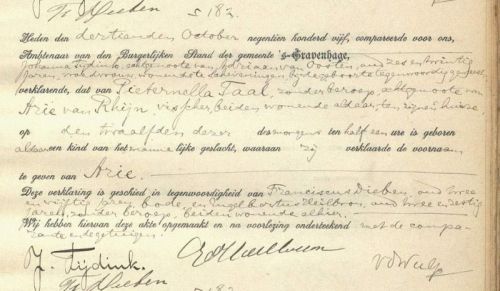 Fs Dieben 5182.
Heden den dertienden October negentien honderd vijf, compareerde voor ons,
Ambtenaar van den Burgerlijken Stand der gemeente 's-Gravenhage,
Johanna Tijdink, echtgenoote van Adriaan van Oosten, oud zes en twintig
jaren, vroedvrouw, wonende te Scheveningen bij de geboorte tegenwoordig geweest,
verklarende, dat van Pieternella Taal, zonder beroep, echtgenoote van
Arie van Rhijn visscher, beiden wonende aldaar, ten zijnen huize
op den twaalfden dezer des morgens ten half een ure is geboren
aldaar een kind van het mannelijke geslacht, waaraan zij verklaarde de voornaam
te geven van Arie.
Deze verklaring is geschied in tegenwoordigheid van Franciscus Dieben, oud twee
en vijftig jaren, bode, en Engelbertus Heilbron, oud twee en zestig
jaren, zonder beroep, beiden wonende alhier.
Wij hebben hiervan deze akte opgemaakt en na voorlezing onderteekend met de compa-
rante en de getuigen.
J. Tijdink.
Fs Dieben 5183